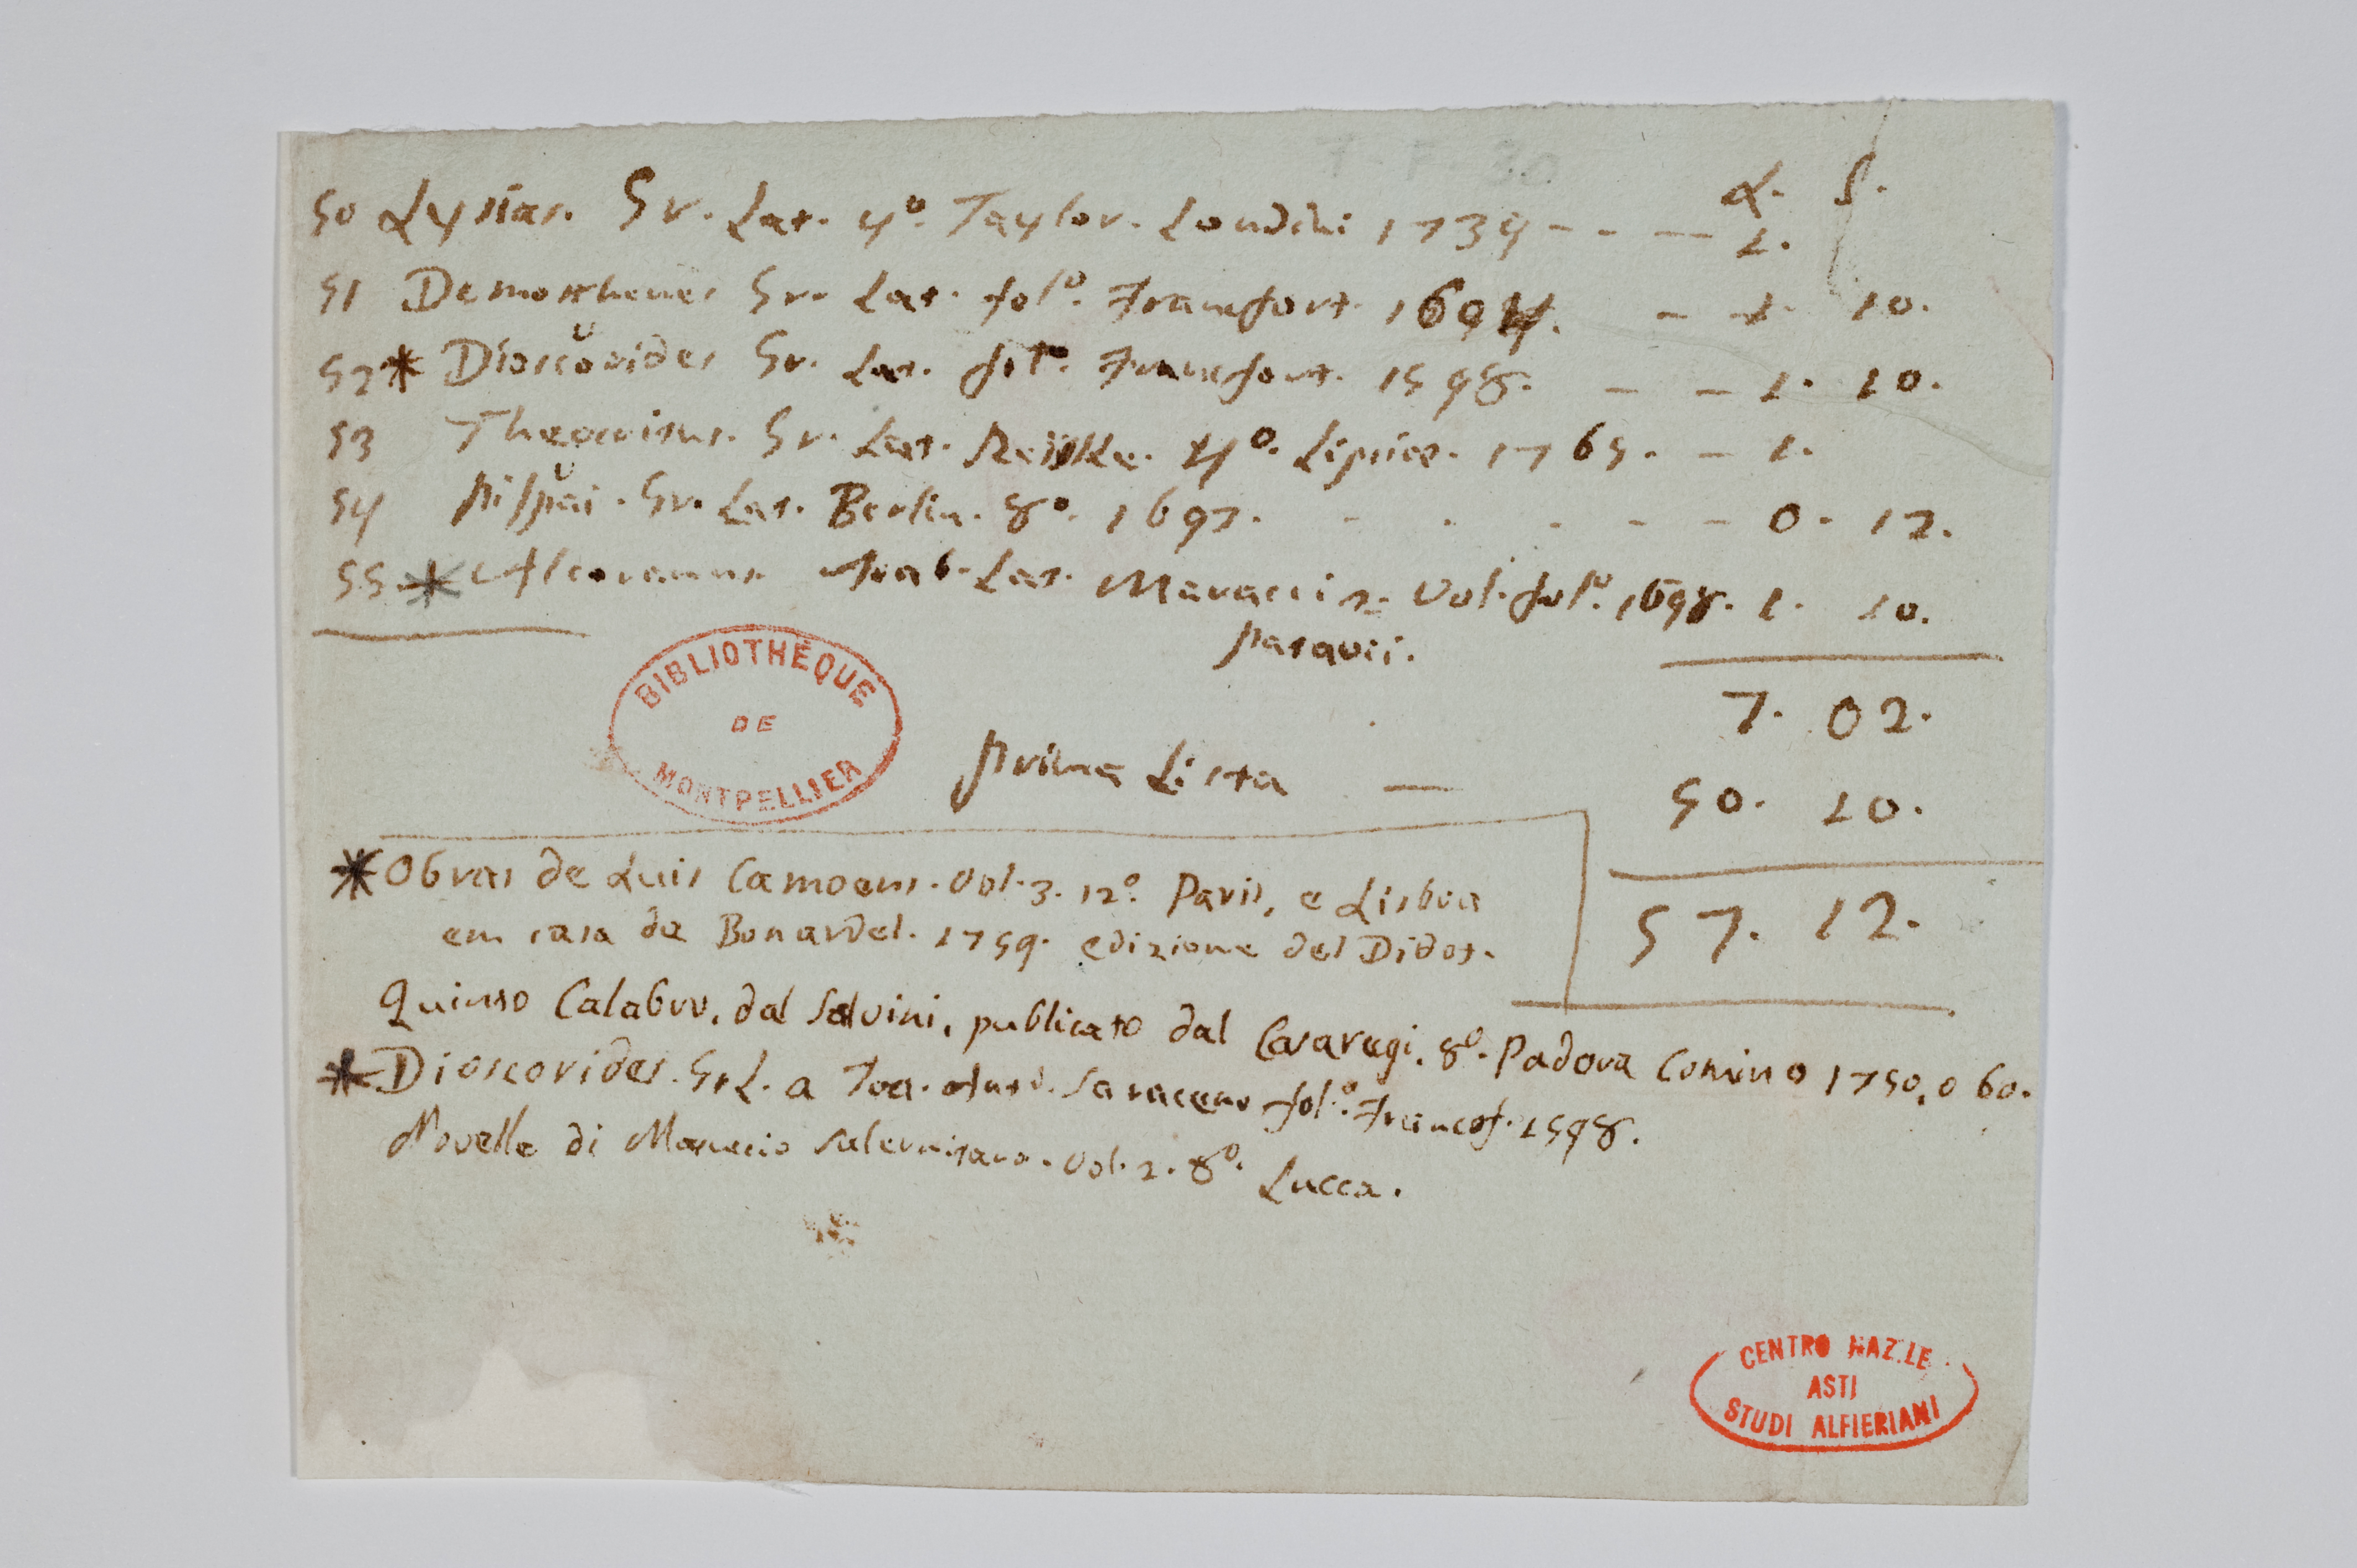 7-F-30
L. S.
50 Lysias. Gr. Lat. 4º. Taylor. Londini 1739 - - - 1.
51 Demosthenes Gr. Lat. folº. Francfort. 1694. - 1. 10.
52 * Dioscorides Gr. Lat. folº. Francfort. 1598. - - 1. 10.
53 Theocritus. Gr. Lat. Reiske. 4º. Lipsiae. 1765. - 1.
54 Gr. Lat. Berlin. 8º. 1697. - - - - - 0. 12.
55 * Alcoranus Arab. Lat. Maracci 2. Vol. folº. 1698. 1. 10.
Patavii.
7. 02.
Prima Lista — 50. 10.
57. 12.
* Obras de Luis Camoens. Vol. 3. 12º. Paris, e Lisboa
em casa de Bonardel. 1759. edizione del Didot.
Quinto Calabro, dal Salvini, publicato dal Casaregi. 8º. Padova Comino 1750, o 60.
* Dioscorides. Gr L. a Saraceno folº. Francof. 1598.
Novelle di Masuccio Salernitano. Vol. 2. 8º. Lucca.
BIBLIOTHÈQUE
DE
MONTPELLIER
CENTRO NAZ.LE
ASTI
STUDI ALFIERIANI